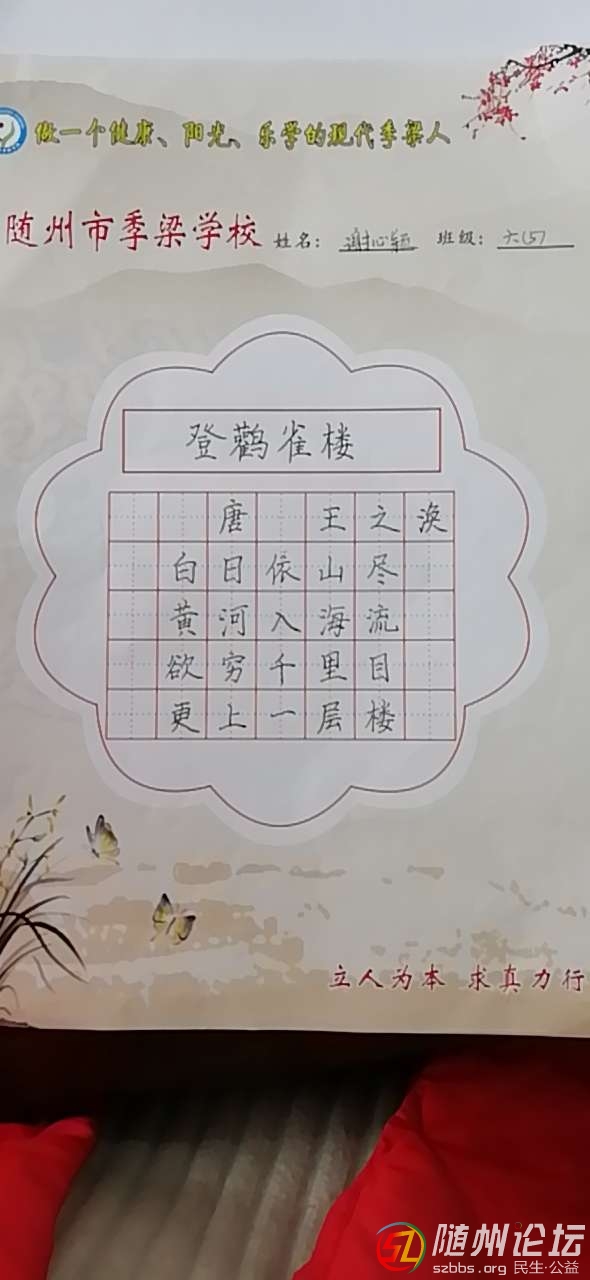 做一个健康、阳光、乐学的现代季梁人
随州市季梁学校 姓名： 谢沁颖 班级： 六（5）
登鹳雀楼
唐 王之涣
白日依山尽
黄河入海流
欲穷千里目
更上一层楼
立人为本 求真力行
随州论坛
szbbs.org 民生·公益